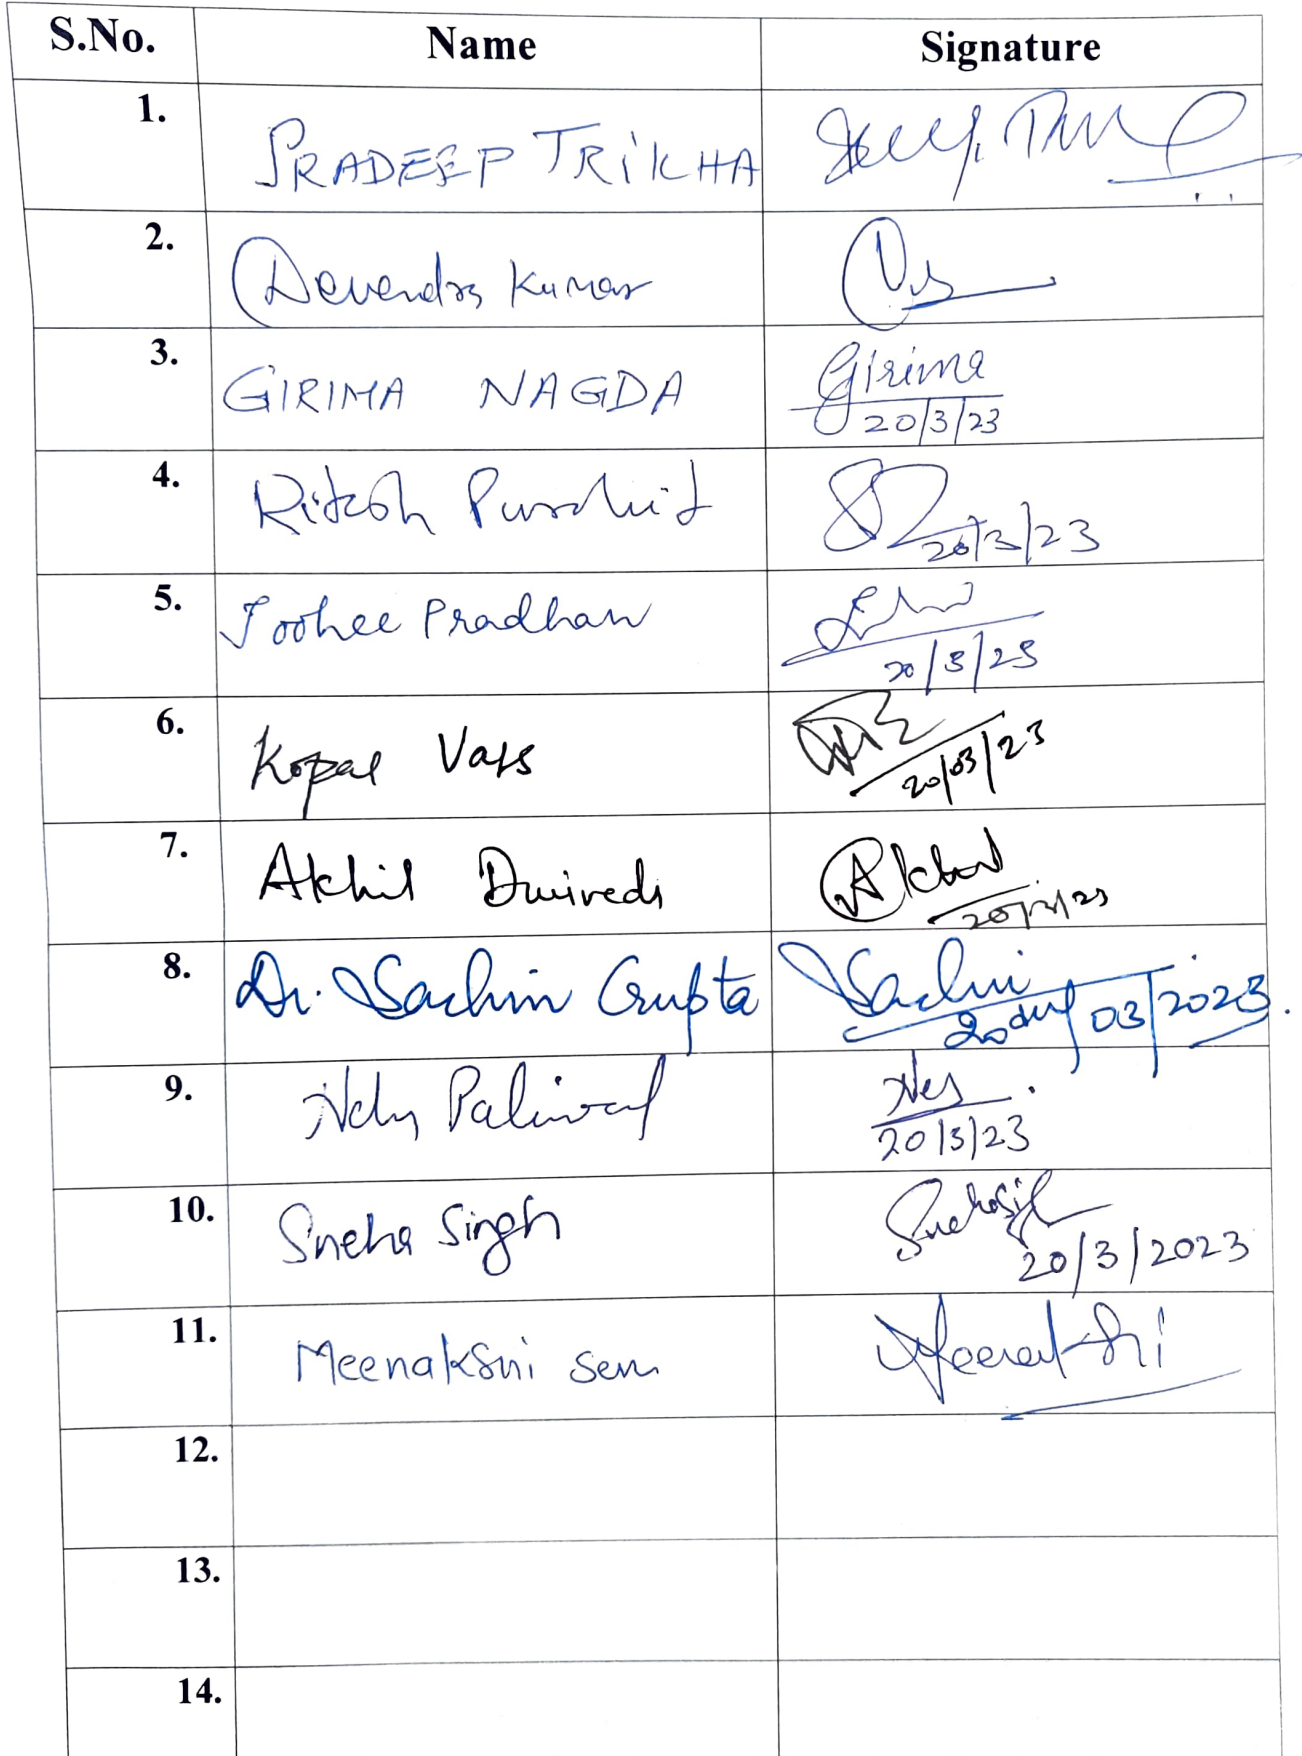 S.No. Name Signature
1. PRADEEP TRIKHA
2. Devendra Kumar
3. GIRIMA NAGDA Girima
20/3/23
4. Ritesh Purohit
20/3/23
5. Joohee Pradhan
20/3/23
6. Kopal Vats
20/03/23
7. Akhil Dwivedi Akhil
20/3/23
8. Dr. Sachin Gupta Sachin
20 03/2023.
9. Paliwal
20/3/23
10. Sneha Singh Snehasingh
20/3/2023
11. Meenakshi Sen Meenakshi
12.
13.
14.